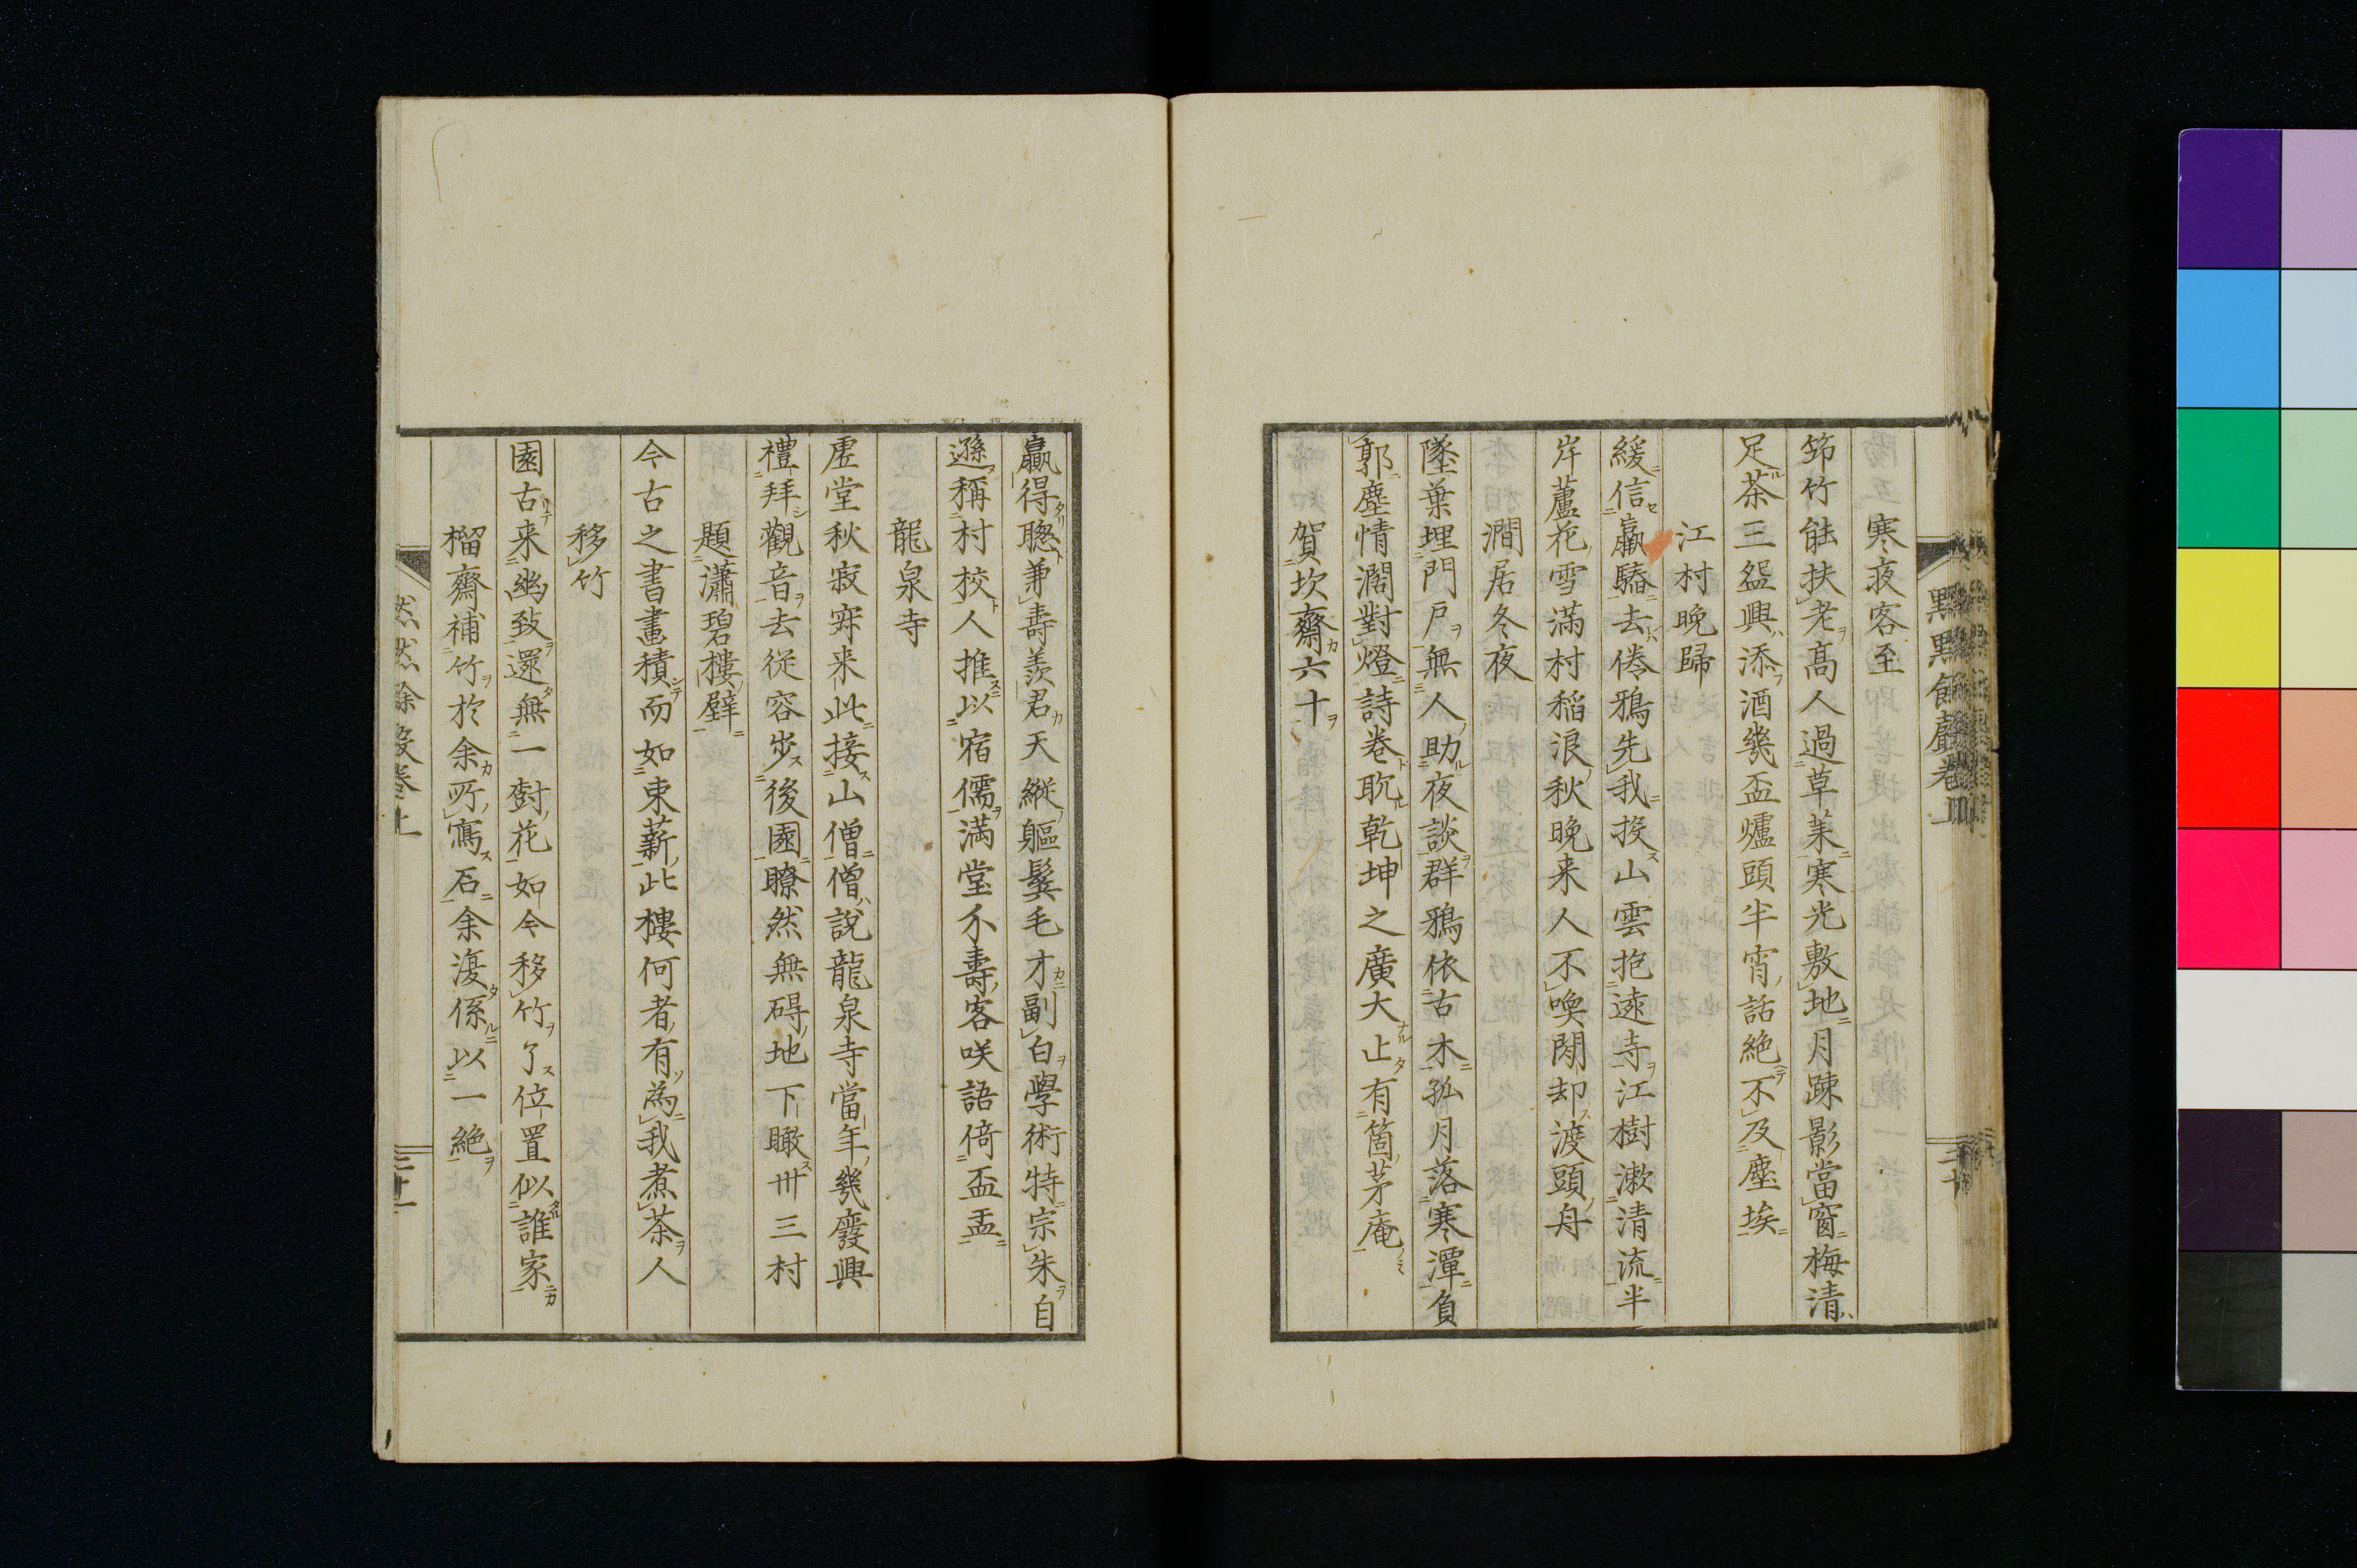 寒夜客至
筇竹能扶老高人過草萊寒光敷地月踈影當窗梅清
足茶三盌興添酒幾盃爐頭半宵話絶不及塵埃
江村晩歸
緩信羸驂去倦鴉先我投山雲抱遠寺江樹漱清流半
岸蘆花雪滿村稲浪秋晩来人不喚閑却渡頭舟
澗居冬夜
墜葉埋門戸無人助夜談群鴉依古木孤月落寒潭負
郭塵情濶對燈詩巻耽乾坤之廣大止有箇茅庵
賀坎齋六十
贏得聰兼壽羨君天縦軀鬓毛才副白學術特宗朱自
遜稱村校人推以宿儒滿堂介壽客咲語倚盃盂
龍泉寺
虚堂秋寂寞来此接山僧僧說龍泉寺當年幾廢興
禮拜觀音去從容步後園瞭然無碍地下瞰卅三村
題瀟碧樓壁
今古之書畫積而如束薪此樓何者有為我煮茶人
移竹
園古来幽致還無一樹花如今移竹了位置似誰家
榴齋補竹於余所寫石余復係以一絶